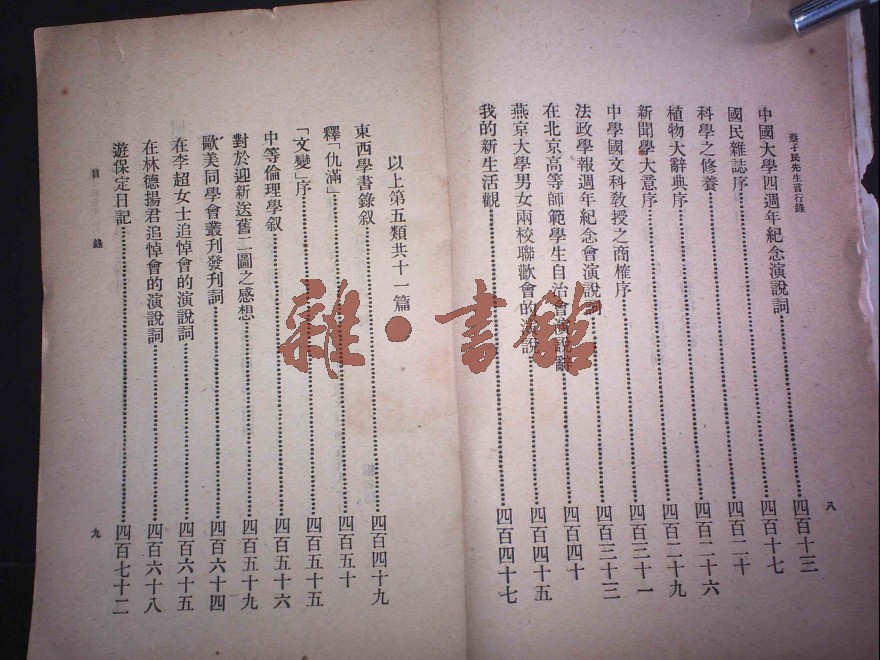 蔡孑民先生言行錄
八
中國大學四週年紀念演說詞……四百十三
國民雜誌序……四百十七
科學之修養……四百二十
植物大辭典序……四百二十六
新聞學大意序……四百二十九
中學國文科教授之商榷序……四百三十一
法政學報週年紀念會演說詞……四百三十三
在北京高等師範學生自治會演說辭……四百四十
燕京大學男女兩校聯歡會的演說……四百四十五
我的新生活觀……四百四十七
以上第五類共十一篇
東西學書錄叙……四百四十九
釋「仇滿」……四百五十
「文變」序……四百五十五
中等倫理學叙……四百五十六
對於迎新送舊二圖之感想……四百五十九
歐美同學會叢刊發刊詞……四百六十四
在李超女士追悼會的演說詞……四百六十五
在林德揚君追悼會的演說詞……四百六十八
遊保定日記……四百七十二
目錄
九
雜·書館